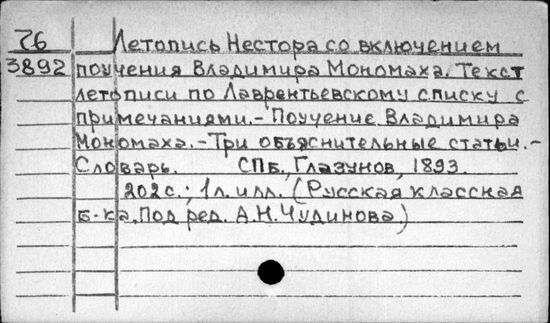 Z6 Летопись Нестора со включением
3892 поучения Владимира Мономаха. Текст
летописи по Лаврентьевскому списку с
примечаниями.-Поучение Владимира
Мономаха.-Три объяснительные статьи.-
Словарь. СПБ., Глазунов, 1893.
202с.; 1л.илл. (Русская классная
б-ка. Под ред. А.Н.Чудинова)